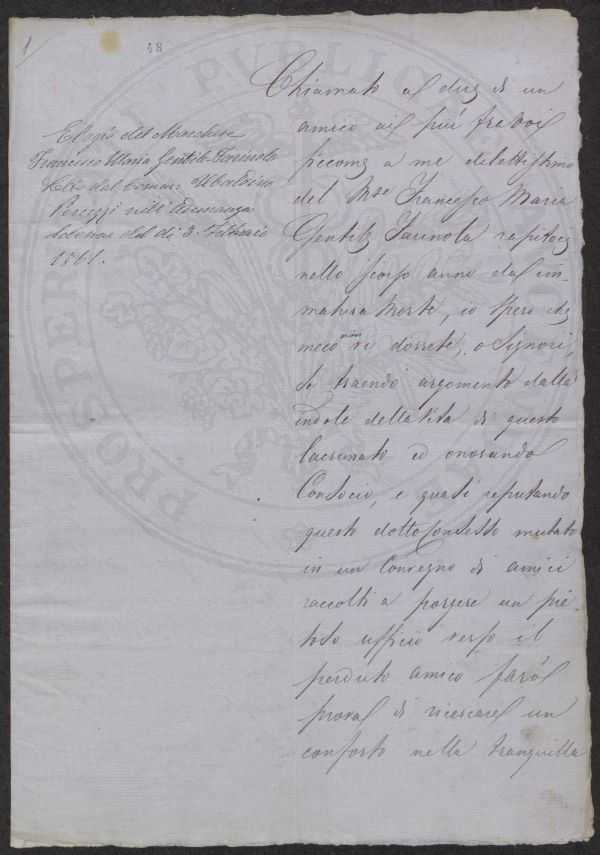 1/
48
Elogio del Marchese
Francesco Maria Gentile Farinola
Letto dal Comm. Ubaldino
Peruzzi nell'Adunanza
solenne del dì 3. Febbraio
1861.
Chiamato a dirvi di un
amico ai più fra voi
siccome a me dilettissimo
del Mse Francesco Maria
Gentile Farinola rapitoci
nello scorso anno da im-
matura morte, io spero che
meco non vi dorrete, o Signori,
se traendo argomento dalla
indole della vita di questo
lacrimato ed onorando
Consocio, e quasi reputando
questo dotto consesso mutato
in un Convegno di amici
raccolti a porgere un pie-
toso ufficio verso il
perduto amico farò
prova di ricercare un
conforto nella tranquilla
PUBLICAE
PROSPERITATI